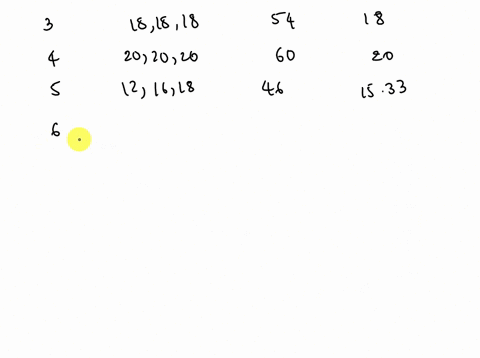 3 18, 18, 18 54 18
4 20, 20, 20 60 20
5 12, 16, 18 46 15.33
6